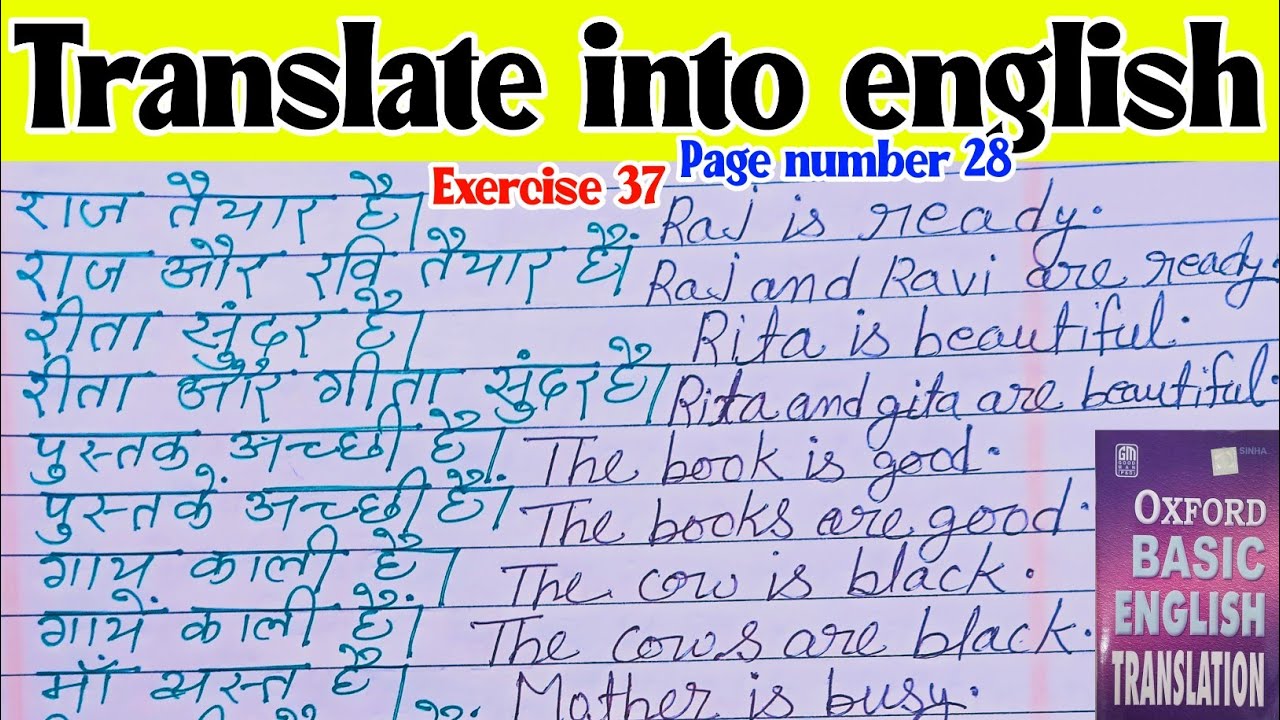 Translate into english
Exercise 37 Page number 28
राज तैयार है। Raj is ready.
राज और रवि तैयार हैं। Raj and Ravi are ready.
रीता सुंदर है। Rita is beautiful.
रीता और गीता सुंदर है। Rita and gita are beautiful.
पुस्तक अच्छी है। The book is good.
पुस्तकें अच्छी हैं। The books are good.
गाय काली है। The cow is black.
गायें काली हैं। The cows are black.
माँ व्यस्त है। Mother is busy.
GM
SINHA
OXFORD
BASIC
ENGLISH
TRANSLATION